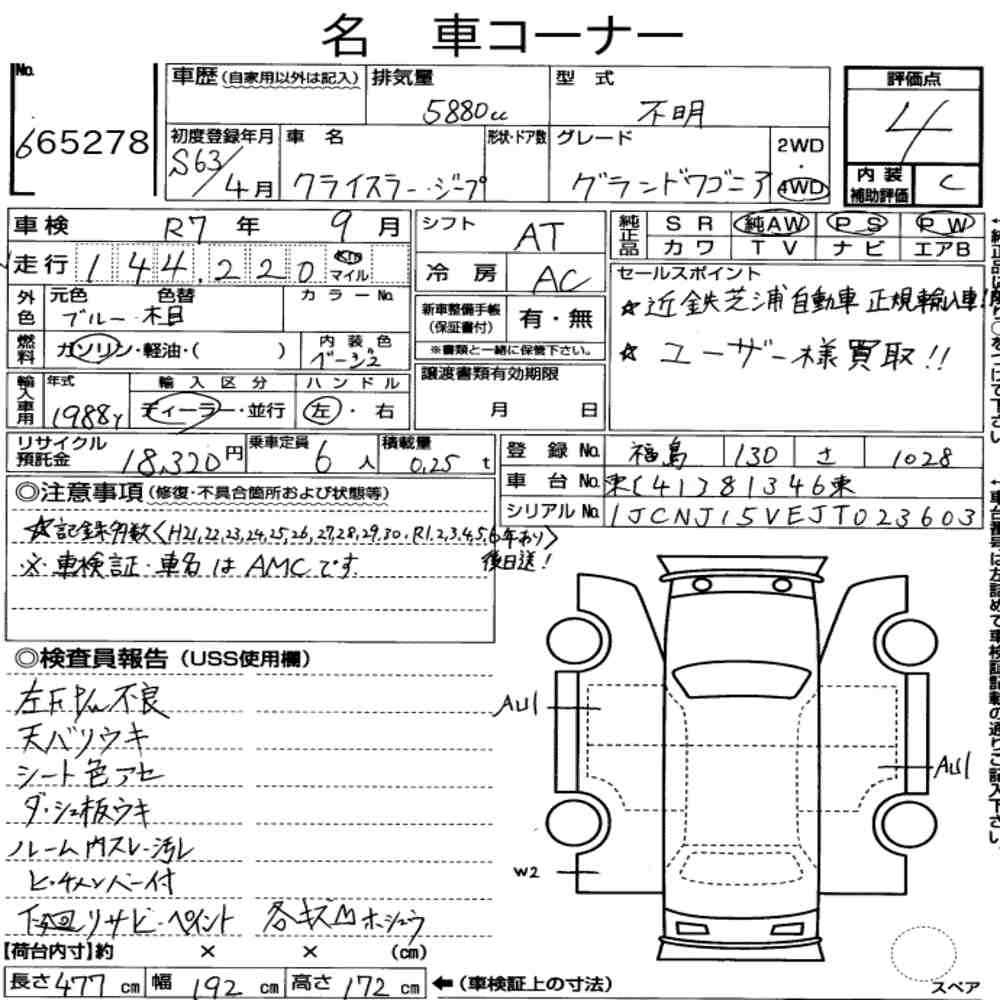 名 車コーナー
No.
665278
車歴(自家用以外は記入)
排気量
5880cc
型 式
不明
評価点
4
初度登録年月
S63/4月
車 名
クライスラー・ジープ
形状・ドア数
グレード
グランドワゴニア
2WD
・
4WD
内 装
補助評価
C
車検 R7 年 9 月
シフト AT
純正品
S R 純AW P S P W
カワ T V ナビ エアB
走行 144,220 Km マイル
冷 房 AC
セールスポイント
☆近鉄芝浦自動車 正規輸入車!
☆ユーザー様買取!!
外色
元色 色替
ブルー・木目
カラーNo.
新車整備手帳
(保証書付)
有・無
※書類と一緒に保管下さい。
燃料
ガソリン・軽油・( )
内 装 色
ベージュ
譲渡書類有効期限
月 日
輸入車用
年式
1988y
輸 入 区 分
ディーラー・並行
ハ ン ド ル
左・右
リサイクル
預託金
18,320円
乗車定員
6人
積載量
0.25 t
登 録 No. 福島 130 さ 1028
車 台 No. 東[41]81346東
シリアル No. 1JCNJ15VEJT023603
◎注意事項(修復・不具合箇所および状態等)
☆記録多数<H21,22,23,24,25,26,27,28,29,30,R1,2,3,4,5,6年あり>
後日送!
※車検証・車名はAMCです.
◎検査員報告(USS使用欄)
左F P/W不良
天バリウキ
シート色アセ
ダッシュ板ウキ
ルーム内スレ・汚レ
ヒッチメンバー付
下廻リサビ・ペイント
各キズ凹ホシュウ
AU1
AU1
W2
【荷台内寸】約 × × (cm)
長さ477cm 幅192cm 高さ172cm ←(車検証上の寸法)
スペア